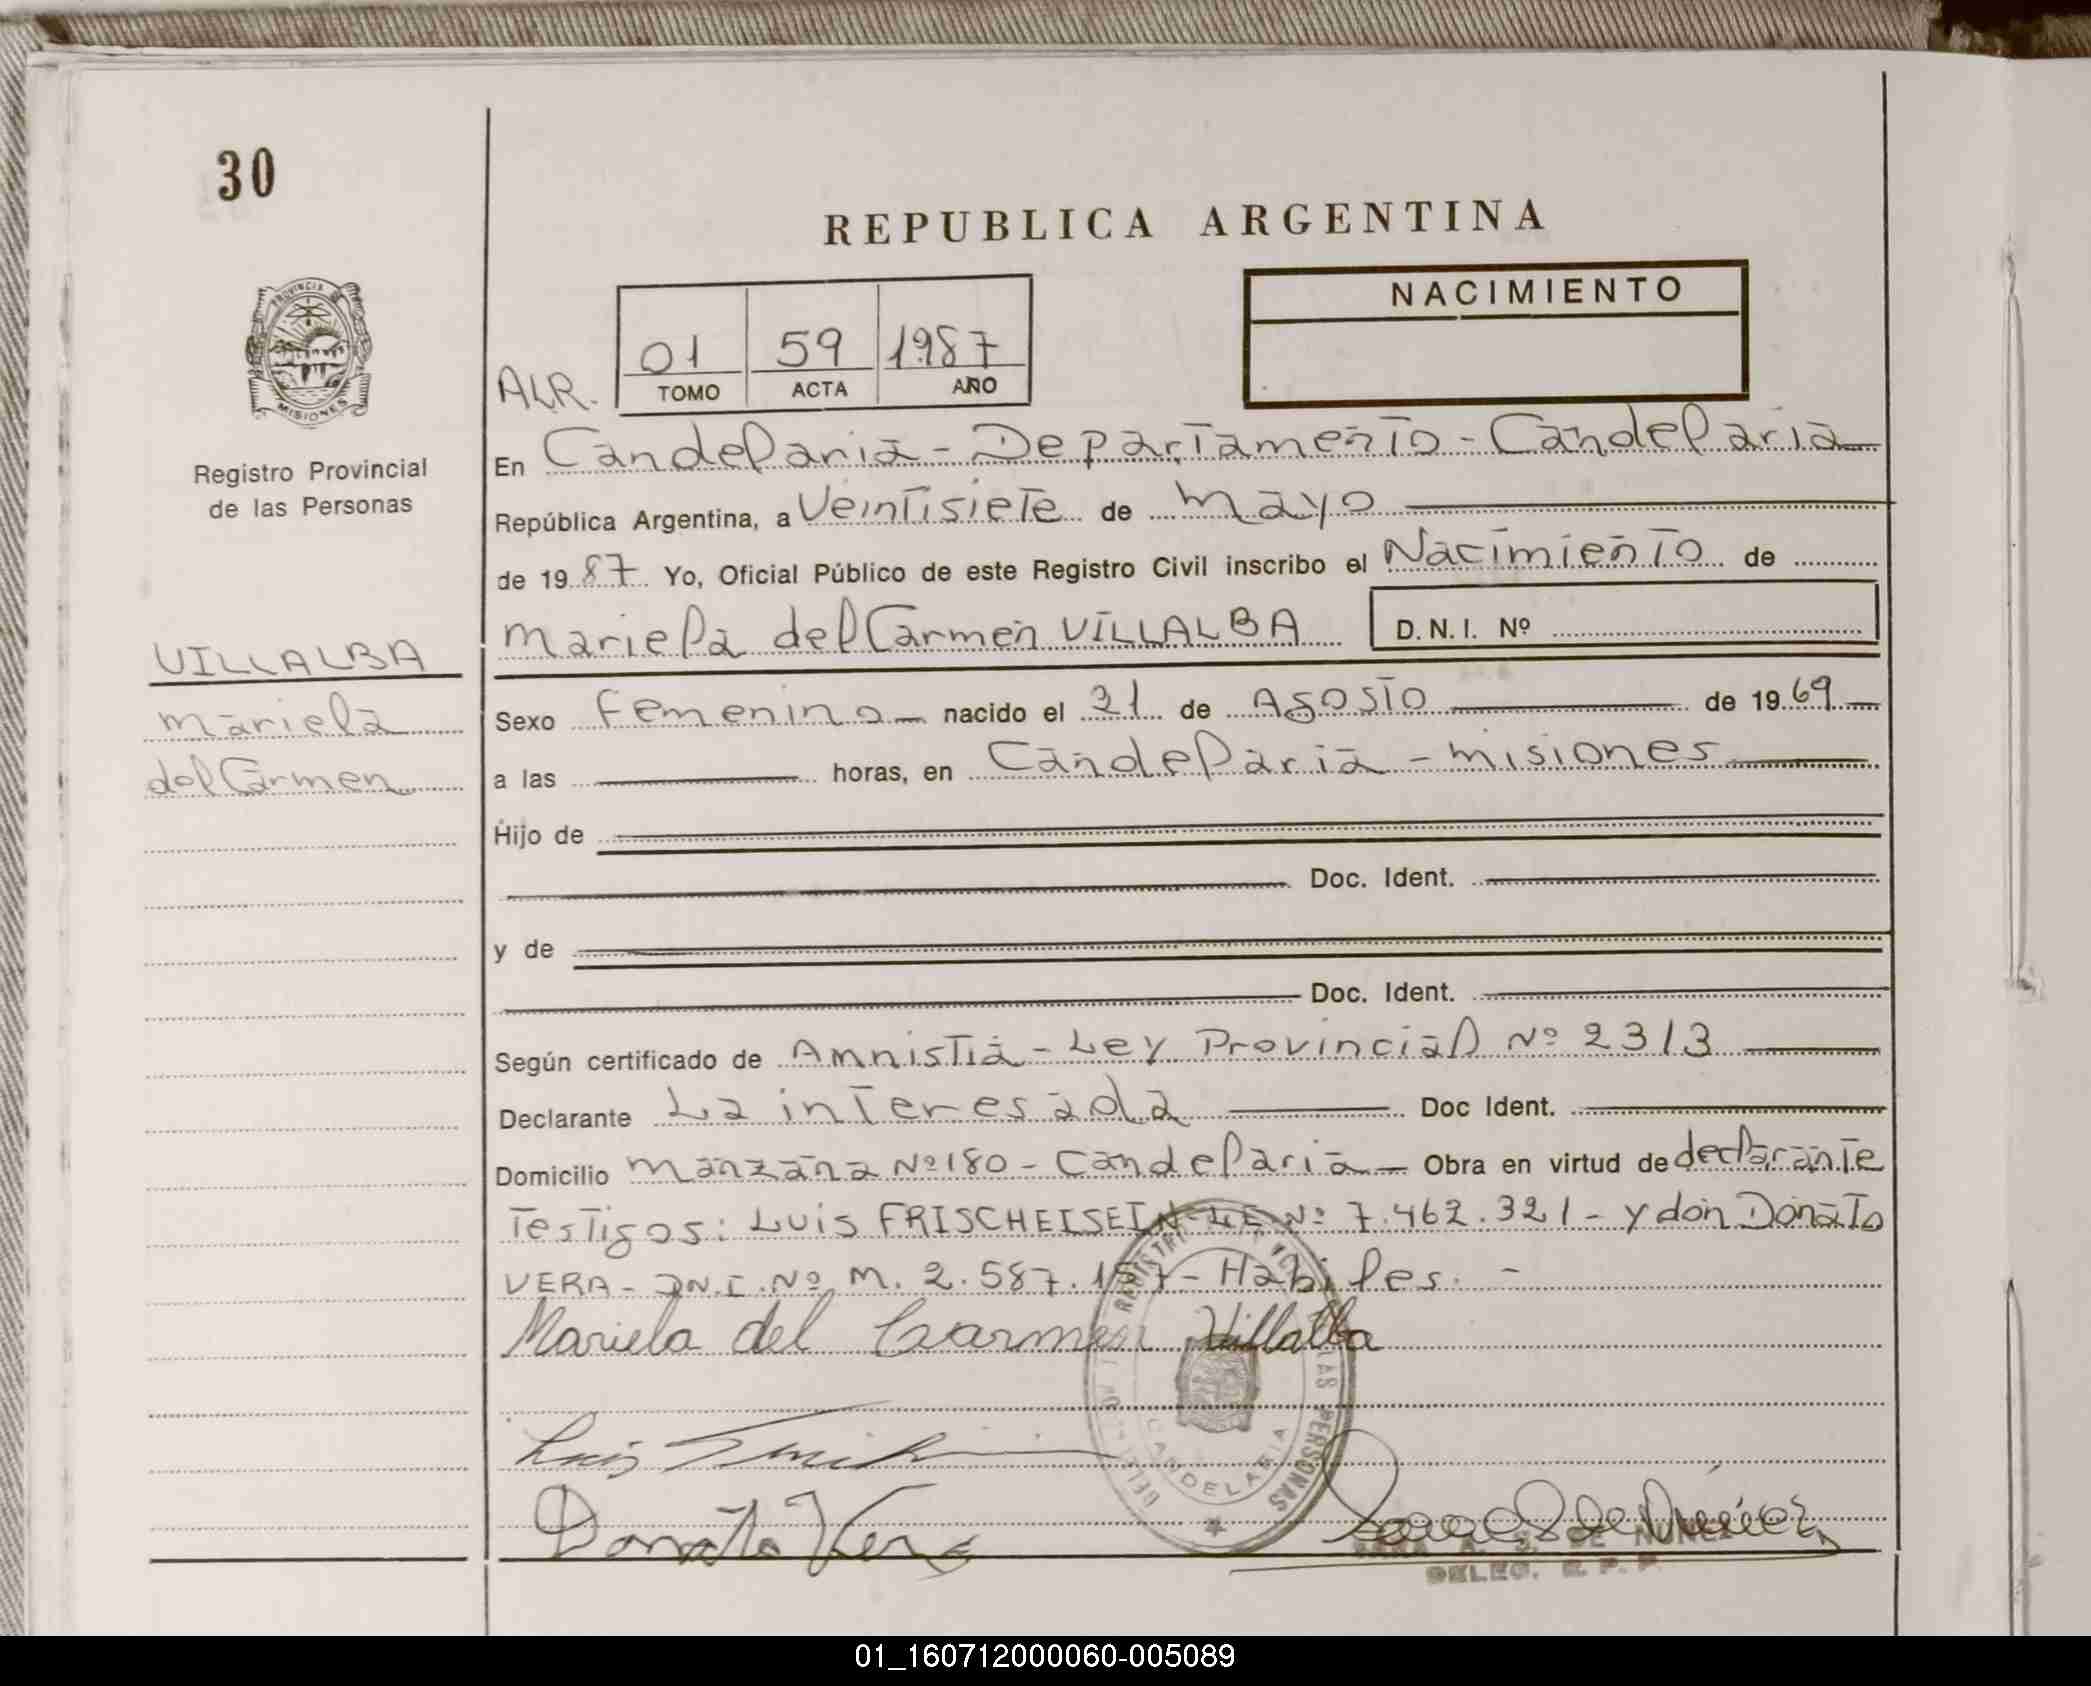 30
REPUBLICA ARGENTINA
PROVINCIA DE
MISIONES
NACIMIENTO
ALR.
01 59 1987
TOMO ACTA AÑO
Registro Provincial
de las Personas
En Candelaria - Departamento - Candelaria
República Argentina, a Veintisiete de mayo
de 1987 Yo, Oficial Público de este Registro Civil inscribo el Nacimiento de
Mariela del Carmen VILLALBA D.N.I. Nº
VILLALBA
Mariela
del Carmen
Sexo Femenino nacido el 21 de Agosto de 1969
a las horas, en Candelaria - Misiones
Hijo de
Doc. Ident.
y de
Doc. Ident.
Según certificado de Amnistia - Ley Provincial Nº 2313
Declarante La interesada Doc Ident.
Domicilio Manzana Nº 180 - Candelaria - Obra en virtud de declarante
Testigos: Luis FRISCHEISEIN - L.E. Nº 7.462.321 - y don Donato
VERA - D.N.I. Nº M. 2.587.157 - Habiles. -
Mariela del Carmen Villalba
LAS PERSONAS
CANDELARIA
Luis
Donato Vera
DE NUÑEZ
DELEG. R. P. P.
01_160712000060-005089